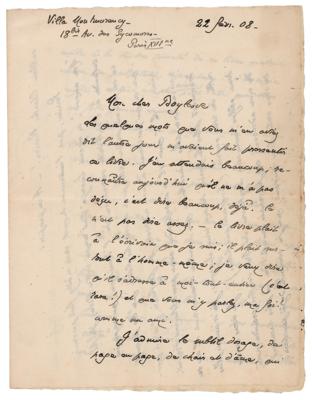 Villa Montmorency
18bis Av. des Sycomores
Paris XVIme
22 févr. 08.
Mon cher Boylesve
les quelques mots que vous m'en aviez
dit l'autre jour m'avaient fait pressentir
ce livre. J'en attendais beaucoup, re-
connaître aujourd'hui qu'il ne m'a pas
déçu, c'est dire beaucoup, déjà. Ce
n'est pas dire assez. — Le livre plaît
à l'écrivain que je suis; il plaît sur-
tout à l'homme-même; je veux dire
qu'il s'adresse à moi tout entier (c'est
rare!) et que vous m'y parlez, ma foi!
comme un ami.
J'admire le subtil dosage, de
page en page, de chair et d'âme, qui